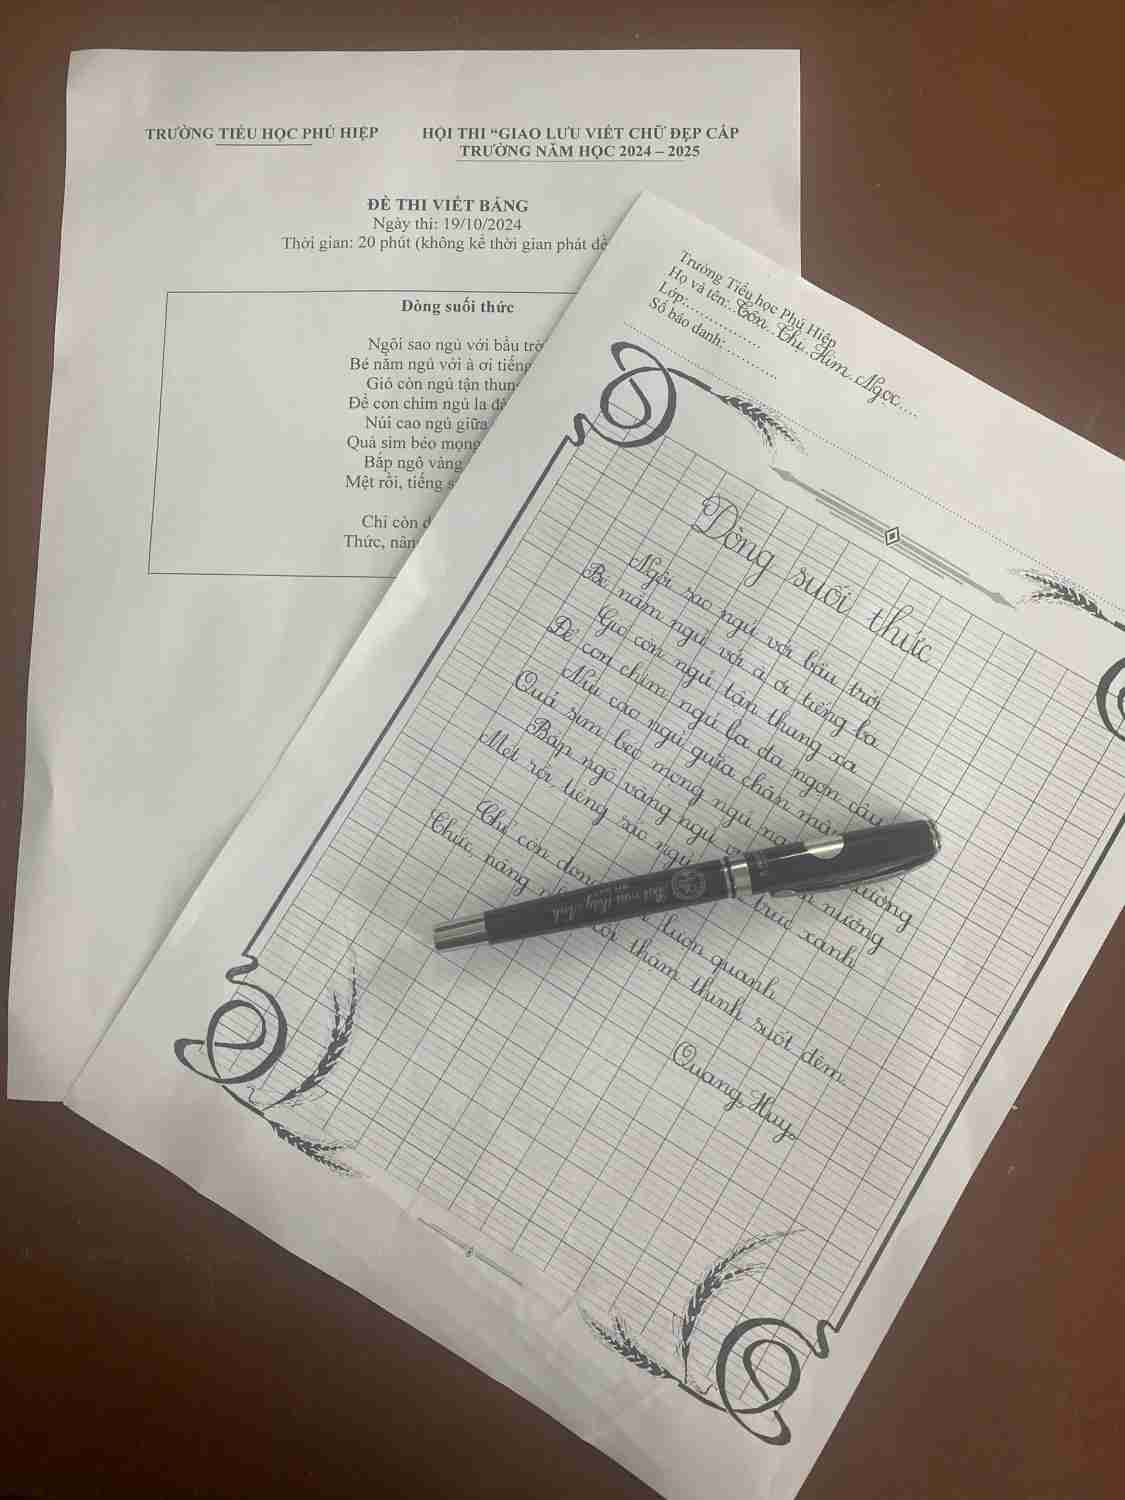 TRƯỜNG TIỂU HỌC PHÚ HIỆP
HỘI THI “GIAO LƯU VIẾT CHỮ ĐẸP CẤP
TRƯỜNG NĂM HỌC 2024 – 2025
ĐỀ THI VIẾT BẢNG
Ngày thi: 19/10/2024
Thời gian: 20 phút (không kể thời gian phát đề
Dòng suối thức
Ngôi sao ngủ với bầu trờ
Bé nằm ngủ với à ơi tiếng
Gió còn ngủ tận thung
Để con chim ngủ la đà
Núi cao ngủ giữa
Quả sim béo mọng
Bắp ngô vàng
Mệt rồi, tiếng s
Chỉ còn d
Thức, nân
Trường Tiểu học Phú Hiệp
Họ và tên: Tôn Thị Kim Ngọc
Lớp:
Số báo danh:
Dòng suối thức
Ngôi sao ngủ với bầu trời
Bé nằm ngủ với à ơi tiếng ba
Gió còn ngủ tận thung xa
Để con chim ngủ la đà ngọn cây
Núi cao ngủ giữa chăn mây
Quả sim béo mọng ngủ nga đường
Bắp ngô vàng ngủ nương
Mệt rồi, tiếng sáo ngủ trúc xanh
Chỉ còn dòng lượn quanh
Thức, nâng thầm thình suốt đêm
Quang Huy